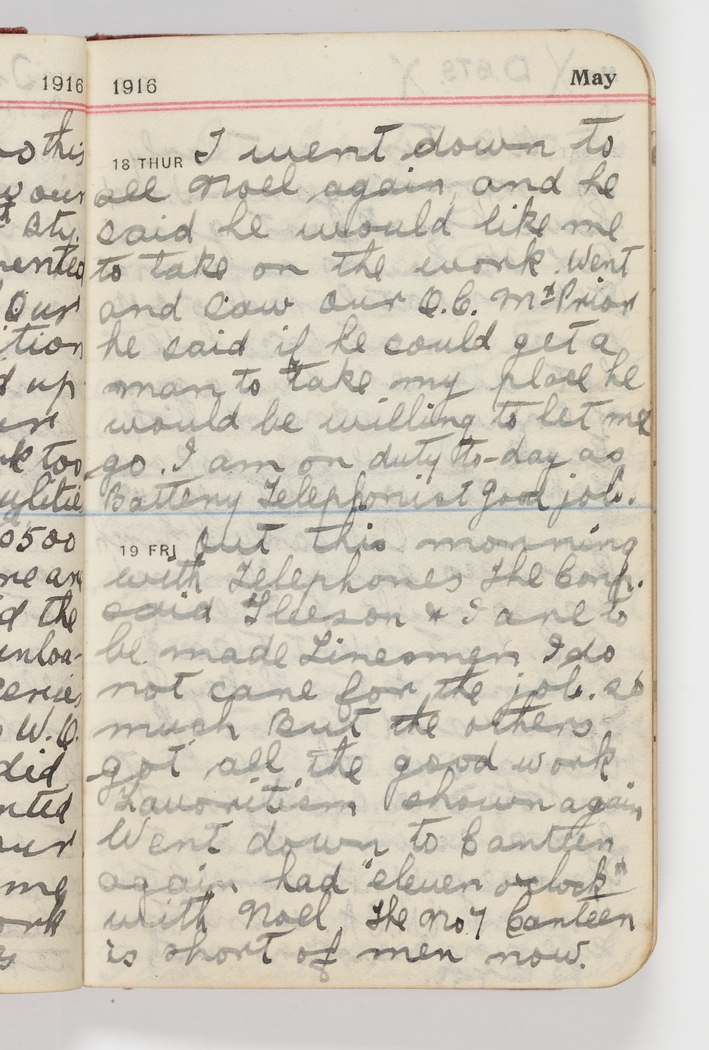 1916
o this
our
Bty.
ented
Our
tion
d up
er
k too
0500
ne an
d the
W.O.
did
nted
our
me
ork
1916 May
18 THUR I went down to
see Noel again and he
said he would like me
to take on the work. Went
and saw our O.C. Mr Prior
he said if he could get a
man to take my place he
would be willing to let me
go. I am on duty to-day as
Battery Telephonist good job.
19 FRI Out this morning
with Telephones The Corp.
said Gleeson & I are to
be made Linesmen I do
not care for the job. so
much But the others
got all the good work
Favoritism shown again
Went down to Canteen
again had "eleven oclock"
with Noel The No 7 Canteen
is short of men now.